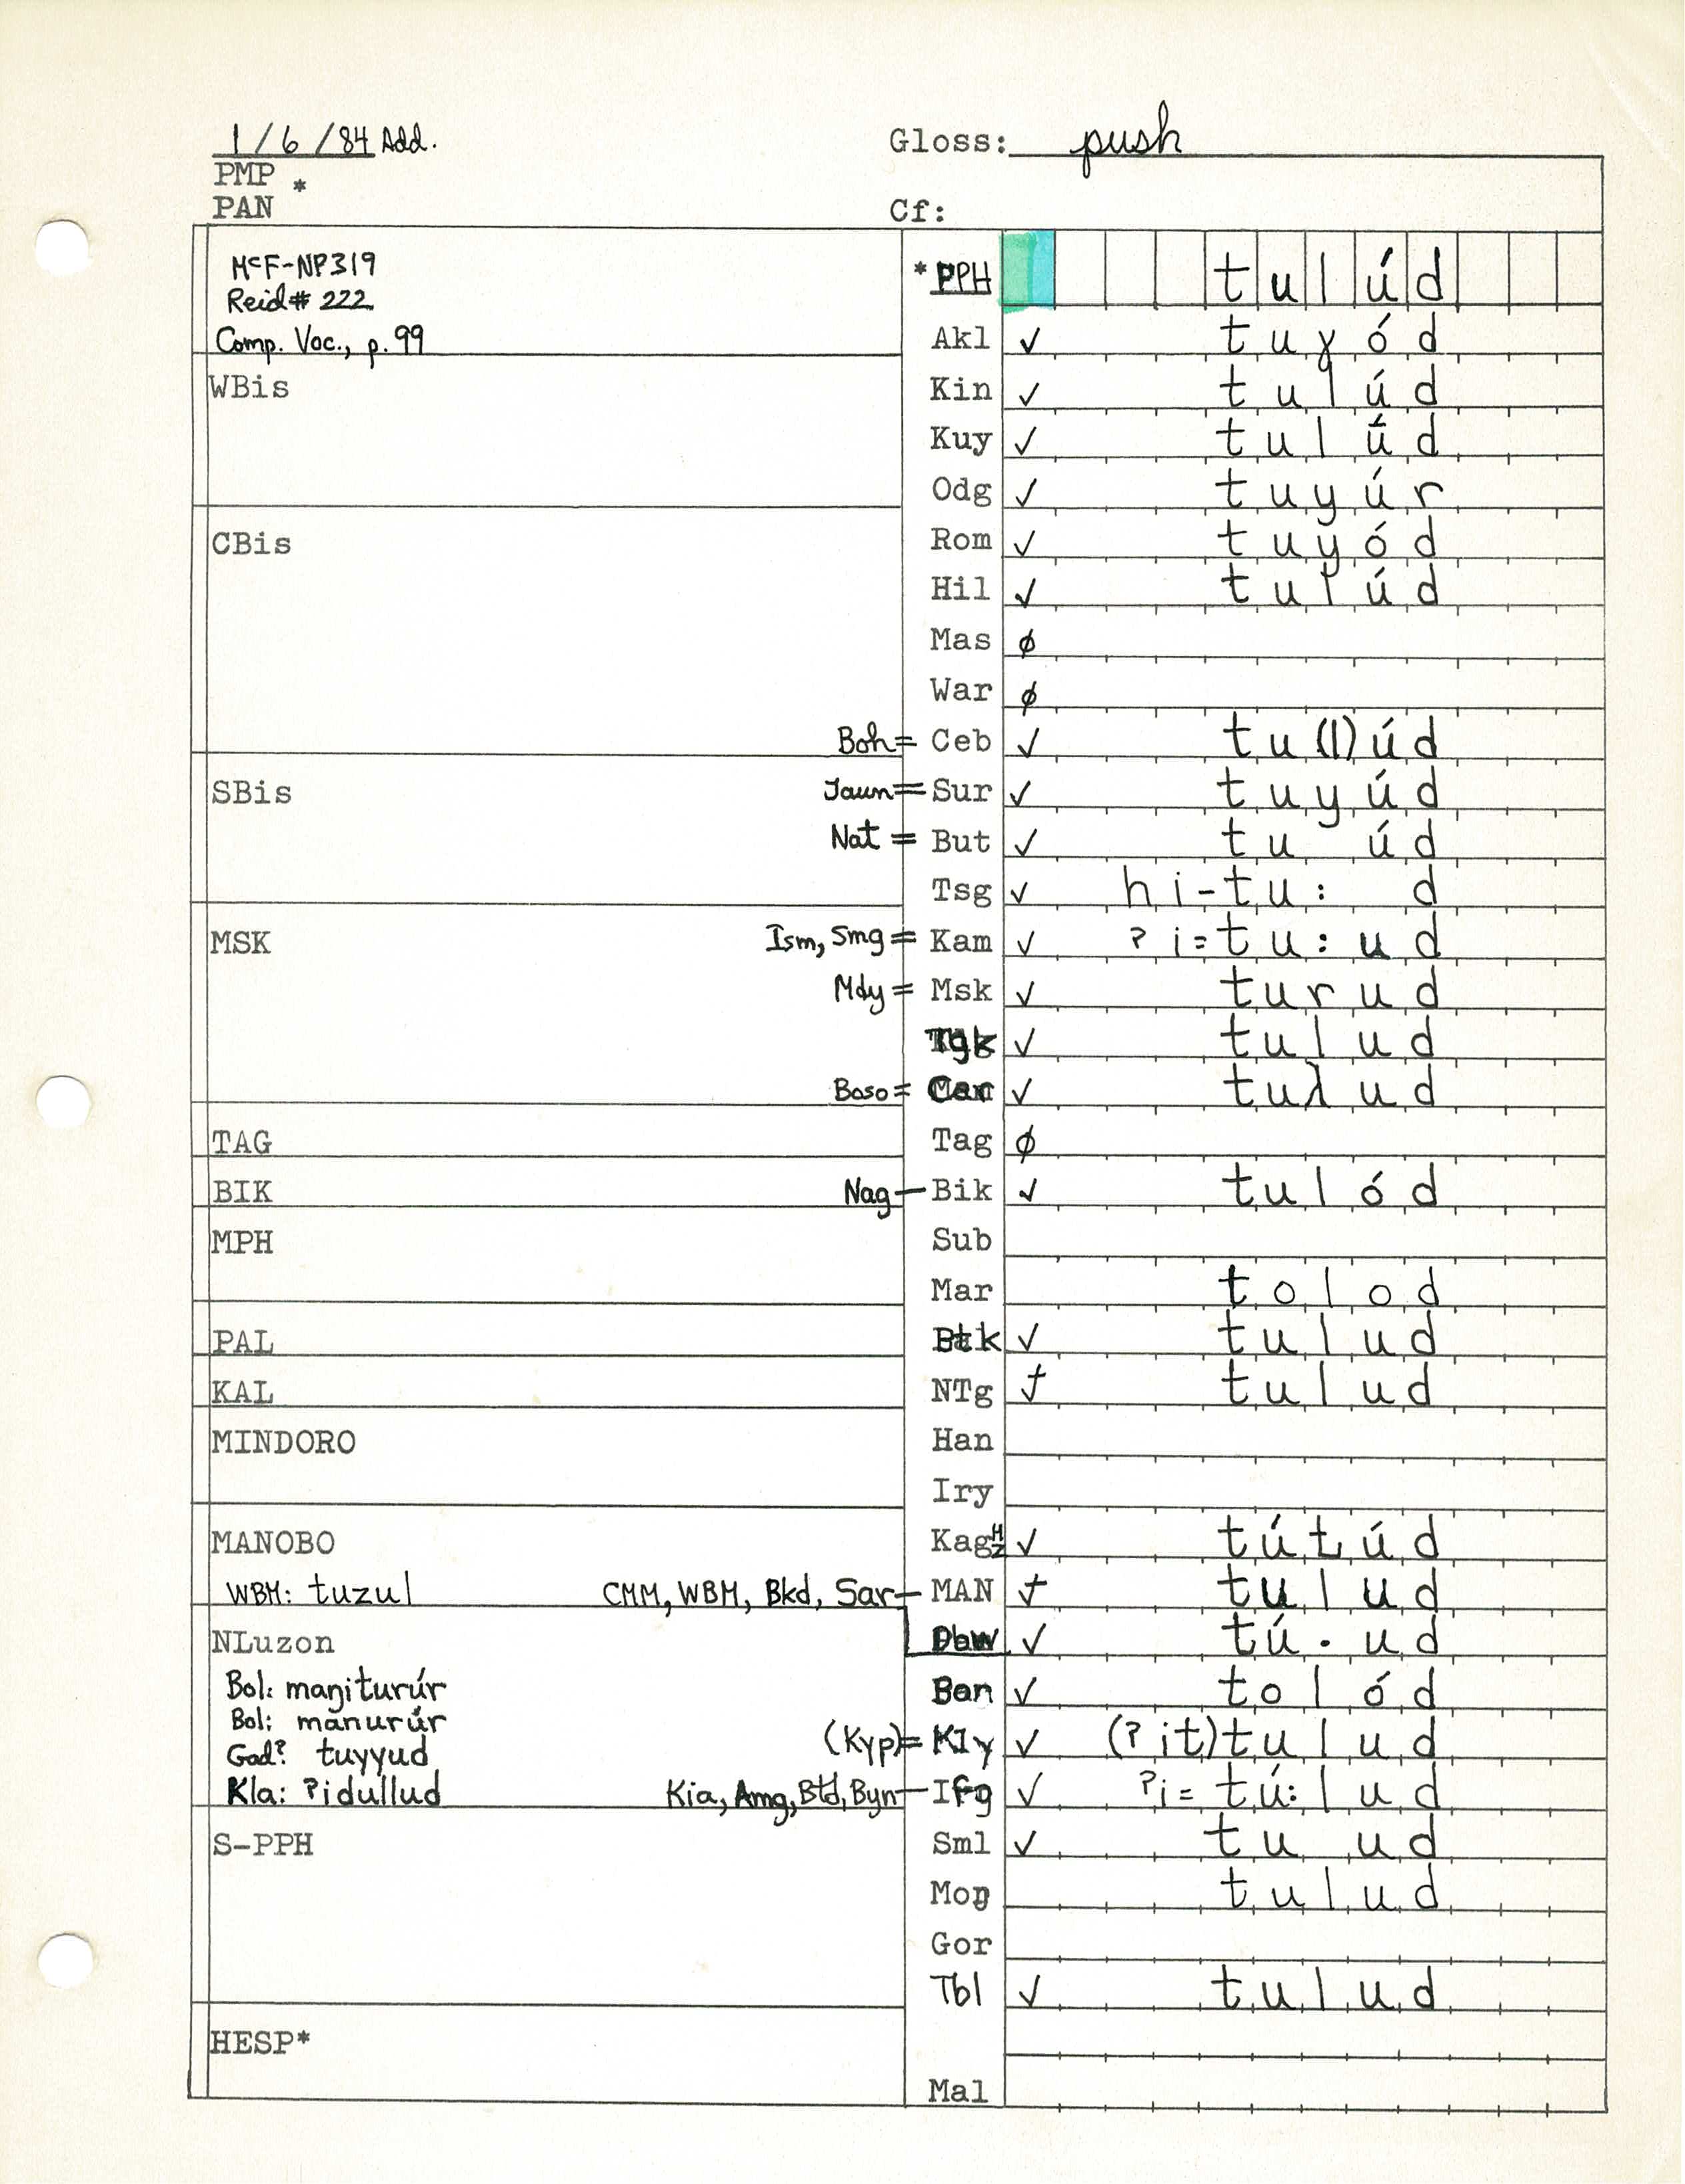 1/6/84 Add. Gloss: push
PMP *
PAN Cf:
McF-NP319
Reid# 222
Comp. Voc., p. 99
*PPH tulúd
Akl ✓ tuɣód
WBis
Kin ✓ tulúd
Kuy ✓ tulúd
Odg ✓ tuyúr
CBis
Rom ✓ tuyód
Hil ✓ tulúd
Mas ∅
War ∅
Boh= Ceb ✓ tu(l)úd
SBis
Jaun= Sur ✓ tuyúd
Nat = But ✓ tu úd
Tsg ✓ hi-tu: d
MSK
Ism, Smg = Kam ✓ ʔi=tu:ud
Mdy = Msk ✓ turud
✓ tulud
Boso = ✓ tuλud
TAG Tag ∅
BIK Nag— Bik ✓ tulód
MPH Sub
Mar tolod
PAL Btk ✓ tulud
KAL NTg † tulud
MINDORO Han
Iry
MANOBO Kag ✓ tútúd
WBM: tuzul CMM, WBM, Bkd, Sar— MAN † tulud
NLuzon ✓ tú·ud
Bol: maŋiturúr
Bon ✓ tolód
Bol: manurúr
Gad? tuyyud (Kyp)= Kly ✓ (ʔit)tulud
Kla: ʔidullud Kia, Amg, Btd, Byn— Ifg ✓ ʔi= tú:lud
S-PPH Sml ✓ tu ud
Moŋ tulud
Gor
Tbl ✓ tulud
HESP*
Mal